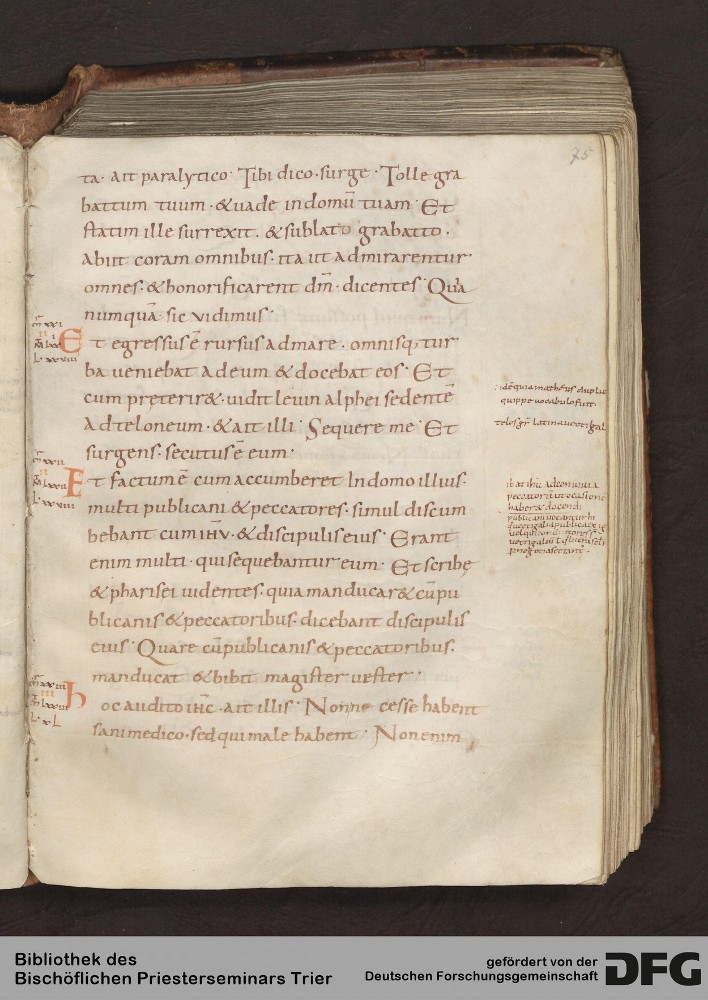 75
ta· ait paralytico· Tibi dico· surge· Tolle gra
battum tuum· & uade in domū tuam· Et
statim ille surrexit. & sublato grabatto·
abiit coram omnibus· ita ut admirarentur
omnes· & honorificarent dm̄· dicentes· Quia
numquā sic vidimus·
Et egressus ē rursus ad mare· omnisq; tur
ba ueniebat ad eum & docebat eos· Et
cum pręterir&· uidit leuin alphei sedentē
ad teloneum· & ait illi· Sequere me· Et
surgens· secutus ē eum·
Et factum ē cum accumberet in domo illius·
multi publicani & peccatores· simul discum
bebant cum ihu· & discipulis eius· Erant
enim multi· qui sequebantur eum· Et scribę
& pharisei uidentes· quia manducar& cū pu
blicanis & peccatoribus· dicebant discipulis
eius· Quare cū publicanis & peccatoribus·
manducat & bibit magister uester·
hoc audito ihc· ait illis· Non necesse habent
sani medico· sed qui male habent· Non enim
quippe uocabulo fuit
telos gr̄ latin uectigal
Bibliothek des
Bischöflichen Priesterseminars Trier
gefördert von der
Deutschen Forschungsgemeinschaft
DFG